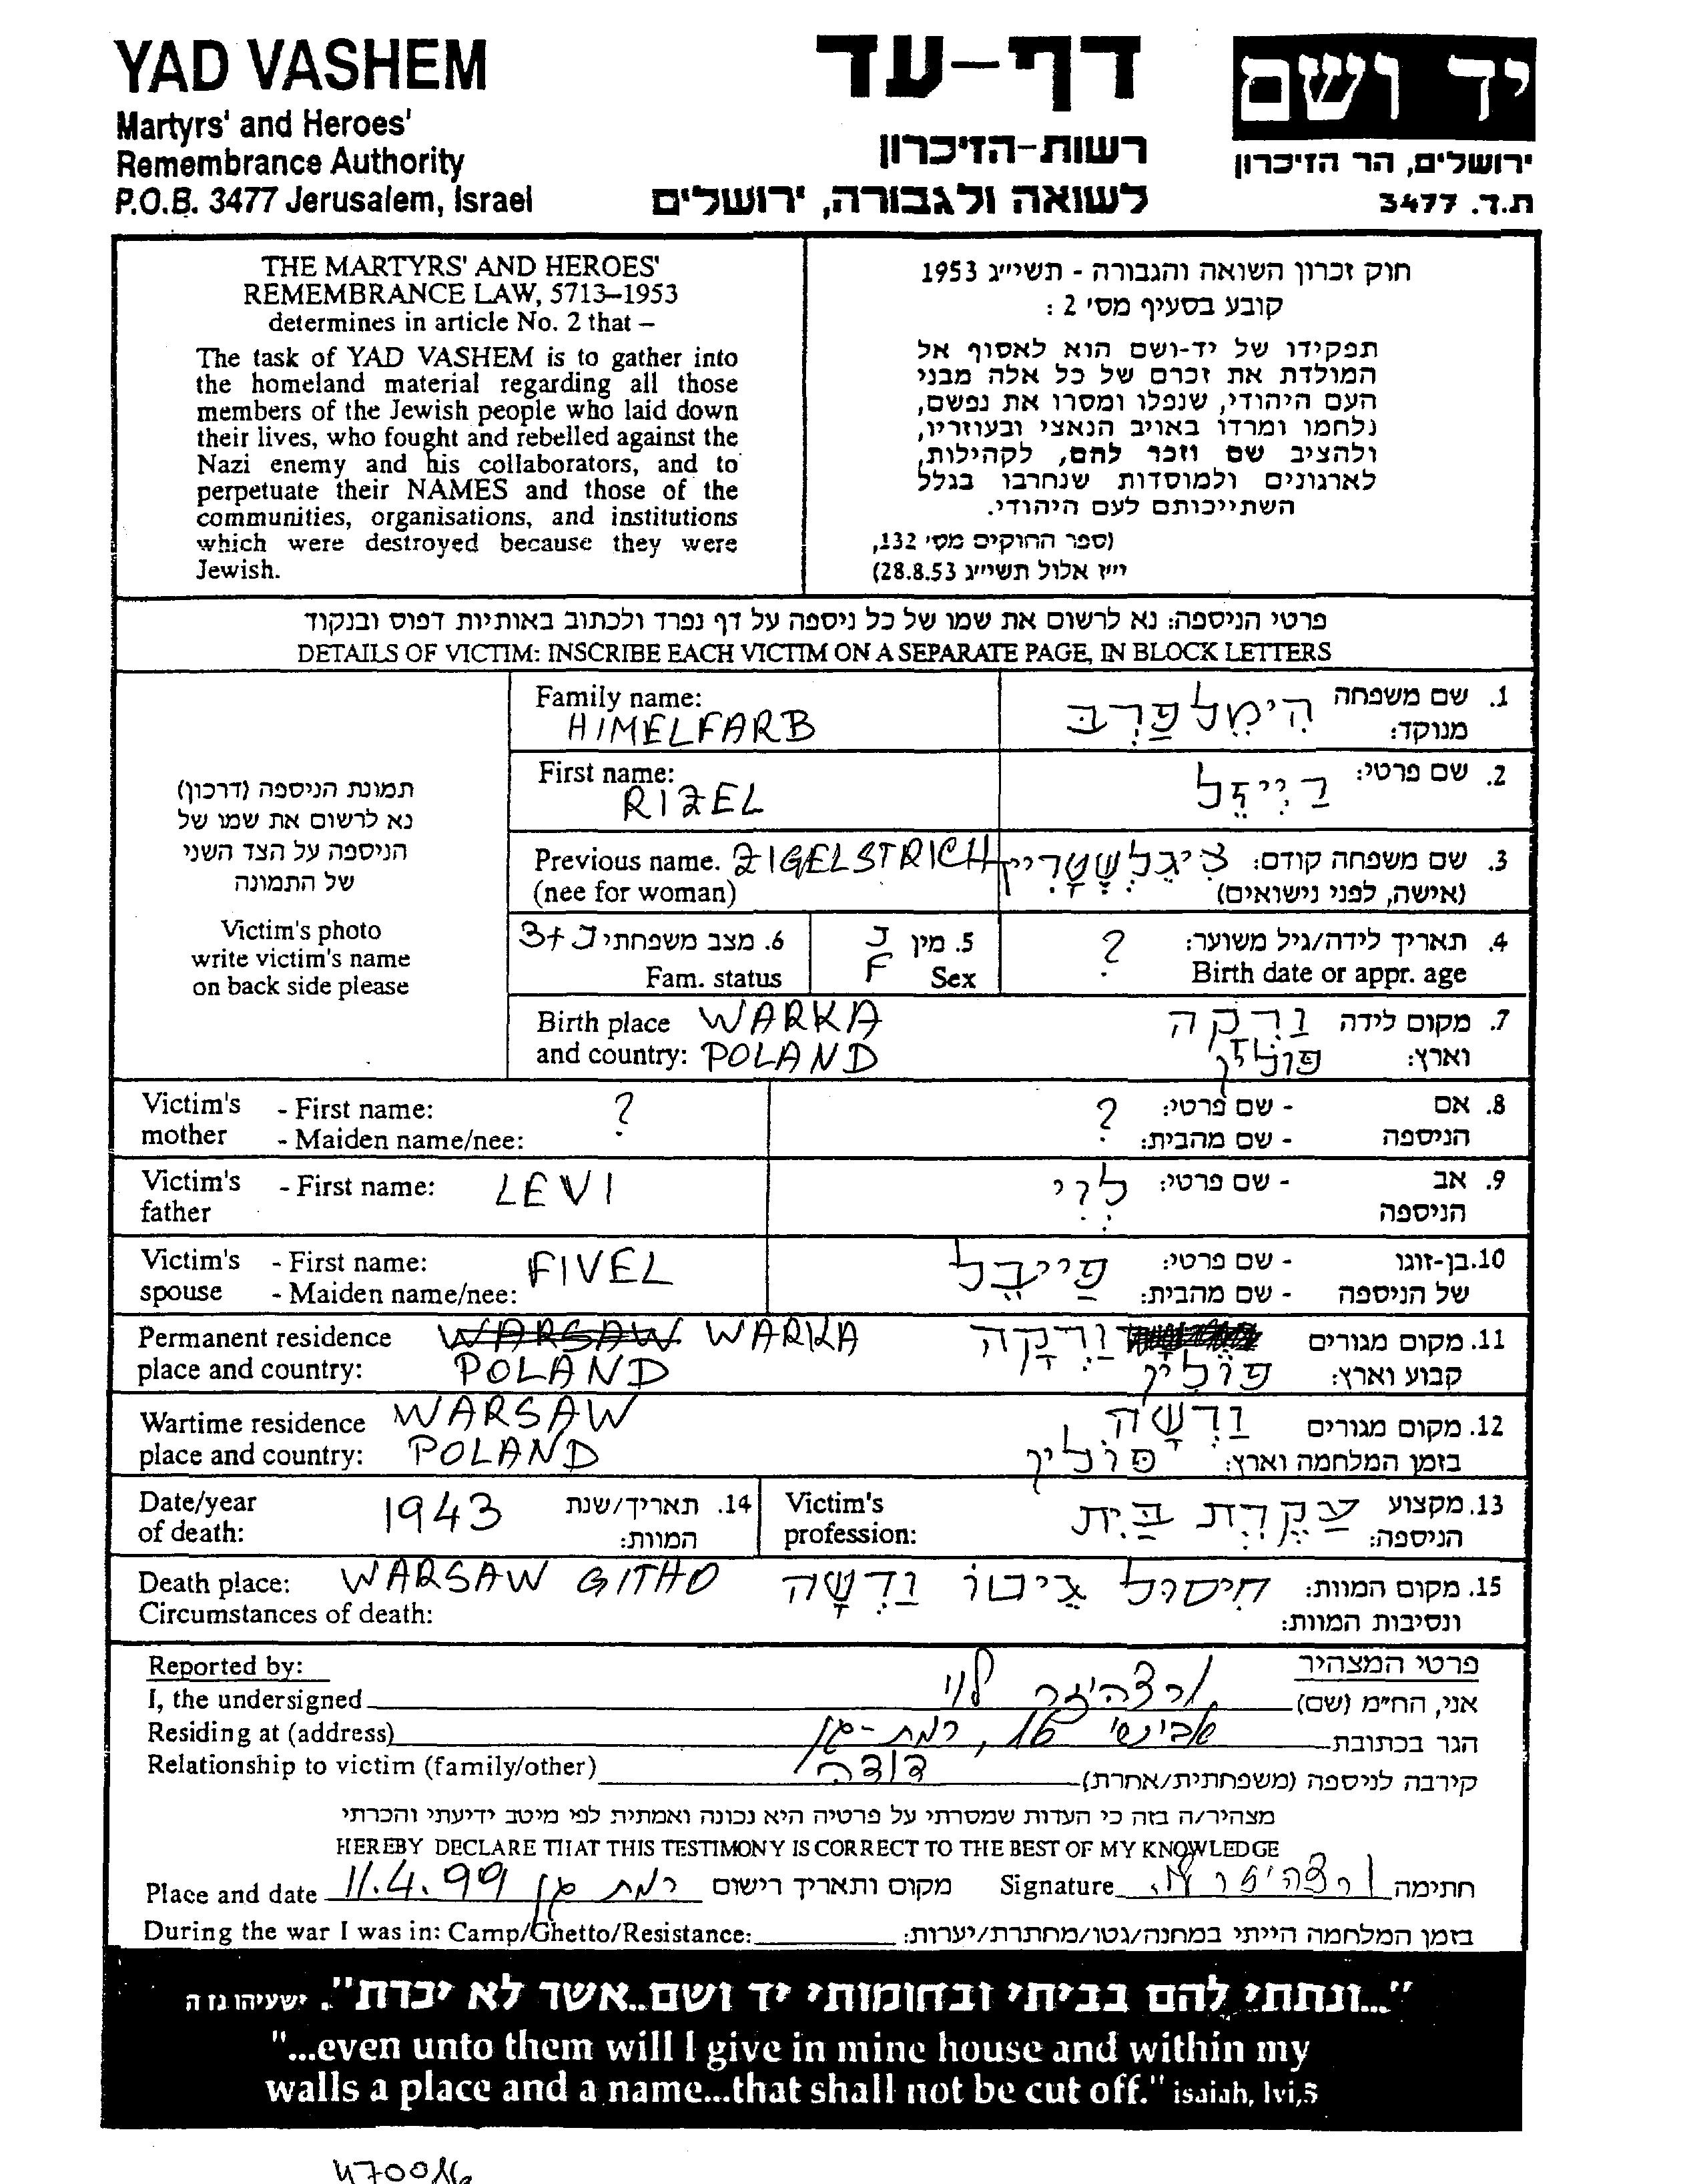 YAD VASHEM
Martyrs' and Heroes'
Remembrance Authority
P.O.B. 3477 Jerusalem, Israel
דף-עד
רשות-הזיכרון
לשואה ולגבורה, ירושלים
יד ושם
ירושלים, הר הזיכרון
ת.ד. 3477
THE MARTYRS' AND HEROES'
REMEMBRANCE LAW, 5713–1953
determines in article No. 2 that –
The task of YAD VASHEM is to gather into
the homeland material regarding all those
members of the Jewish people who laid down
their lives, who fought and rebelled against the
Nazi enemy and his collaborators, and to
perpetuate their NAMES and those of the
communities, organisations, and institutions
which were destroyed because they were
Jewish.
חוק זכרון השואה והגבורה - תשי״ג 1953
קובע בסעיף מס׳ 2 :
תפקידו של יד-ושם הוא לאסוף אל
המולדת את זכרם של כל אלה מבני
העם היהודי, שנפלו ומסרו את נפשם,
נלחמו ומרדו באויב הנאצי ובעוזריו,
ולהציב שם וזכר להם, לקהילות,
לארגונים ולמוסדות שנחרבו בגלל
השתייכותם לעם היהודי.
(ספר החוקים מס׳ 132,
י״ז אלול תשי״ג 28.8.53)
פרטי הניספה: נא לרשום את שמו של כל ניספה על דף נפרד ולכתוב באותיות דפוס ובנקוד
DETAILS OF VICTIM: INSCRIBE EACH VICTIM ON A SEPARATE PAGE, IN BLOCK LETTERS
תמונת הניספה (דרכון)
נא לרשום את שמו של
הניספה על הצד השני
של התמונה
Victim's photo
write victim's name
on back side please
Family name: 1. שם משפחה
HIMELFARB הימלפרב מנוקד:
First name: 2. שם פרטי: רייזל
RIZEL
Previous name. ZIGELSTRICH 3. שם משפחה קודם: ציגלשטריך
(nee for woman) (אישה, לפני נישואים)
6. מצב משפחתי נ+3 5. מין נ 4. תאריך לידה/גיל משוער: ?
Fam. status F Sex Birth date or appr. age
Birth place WARKA 7. מקום לידה ורקה
and country: POLAND וארץ: פולין
Victim's - First name: ? 8. אם - שם פרטי: ?
mother - Maiden name/nee: הניספה - שם מהבית:
Victim's - First name: LEVI 9. אב - שם פרטי: לוי
father הניספה
Victim's - First name: FIVEL 10. בן-זוגו - שם פרטי: פייבל
spouse - Maiden name/nee: של הניספה - שם מהבית:
Permanent residence WARSAW WARKA 11. מקום מגורים ורקה
place and country: POLAND קבוע וארץ: פולין
Wartime residence WARSAW 12. מקום מגורים ורשה
place and country: POLAND בזמן המלחמה וארץ: פולין
Date/year 1943 14. תאריך/שנת Victim's 13. מקצוע עקרת בית
of death: המוות: profession: הניספה:
Death place: WARSAW GITHO 15. מקום המוות: חיסול גיטו ורשה
Circumstances of death: ונסיבות המוות:
Reported by: פרטי המצהיר
I, the undersigned אני, הח״מ (שם) לוי
Residing at (address) הגר בכתובת 16, רמת-גן
Relationship to victim (family/other) קירבה לניספה (משפחתית/אחרת) דודה
מצהיר/ה בזה כי העדות שמסרתי על פרטיה היא נכונה ואמתית לפי מיטב ידיעתי והכרתי
HEREBY DECLARE THAT THIS TESTIMONY IS CORRECT TO THE BEST OF MY KNOWLEDGE
Place and date 11.4.99 רמת גן מקום ותאריך רישום Signature חתימה
During the war I was in: Camp/Ghetto/Resistance: בזמן המלחמה הייתי במחנה/גטו/מחתרת/יערות:
"...ונתתי להם בביתי ובחומותי יד ושם..אשר לא יכרת". ישעיהו נו ה
"...even unto them will I give in mine house and within my
walls a place and a name...that shall not be cut off." isaiah, lvi,5